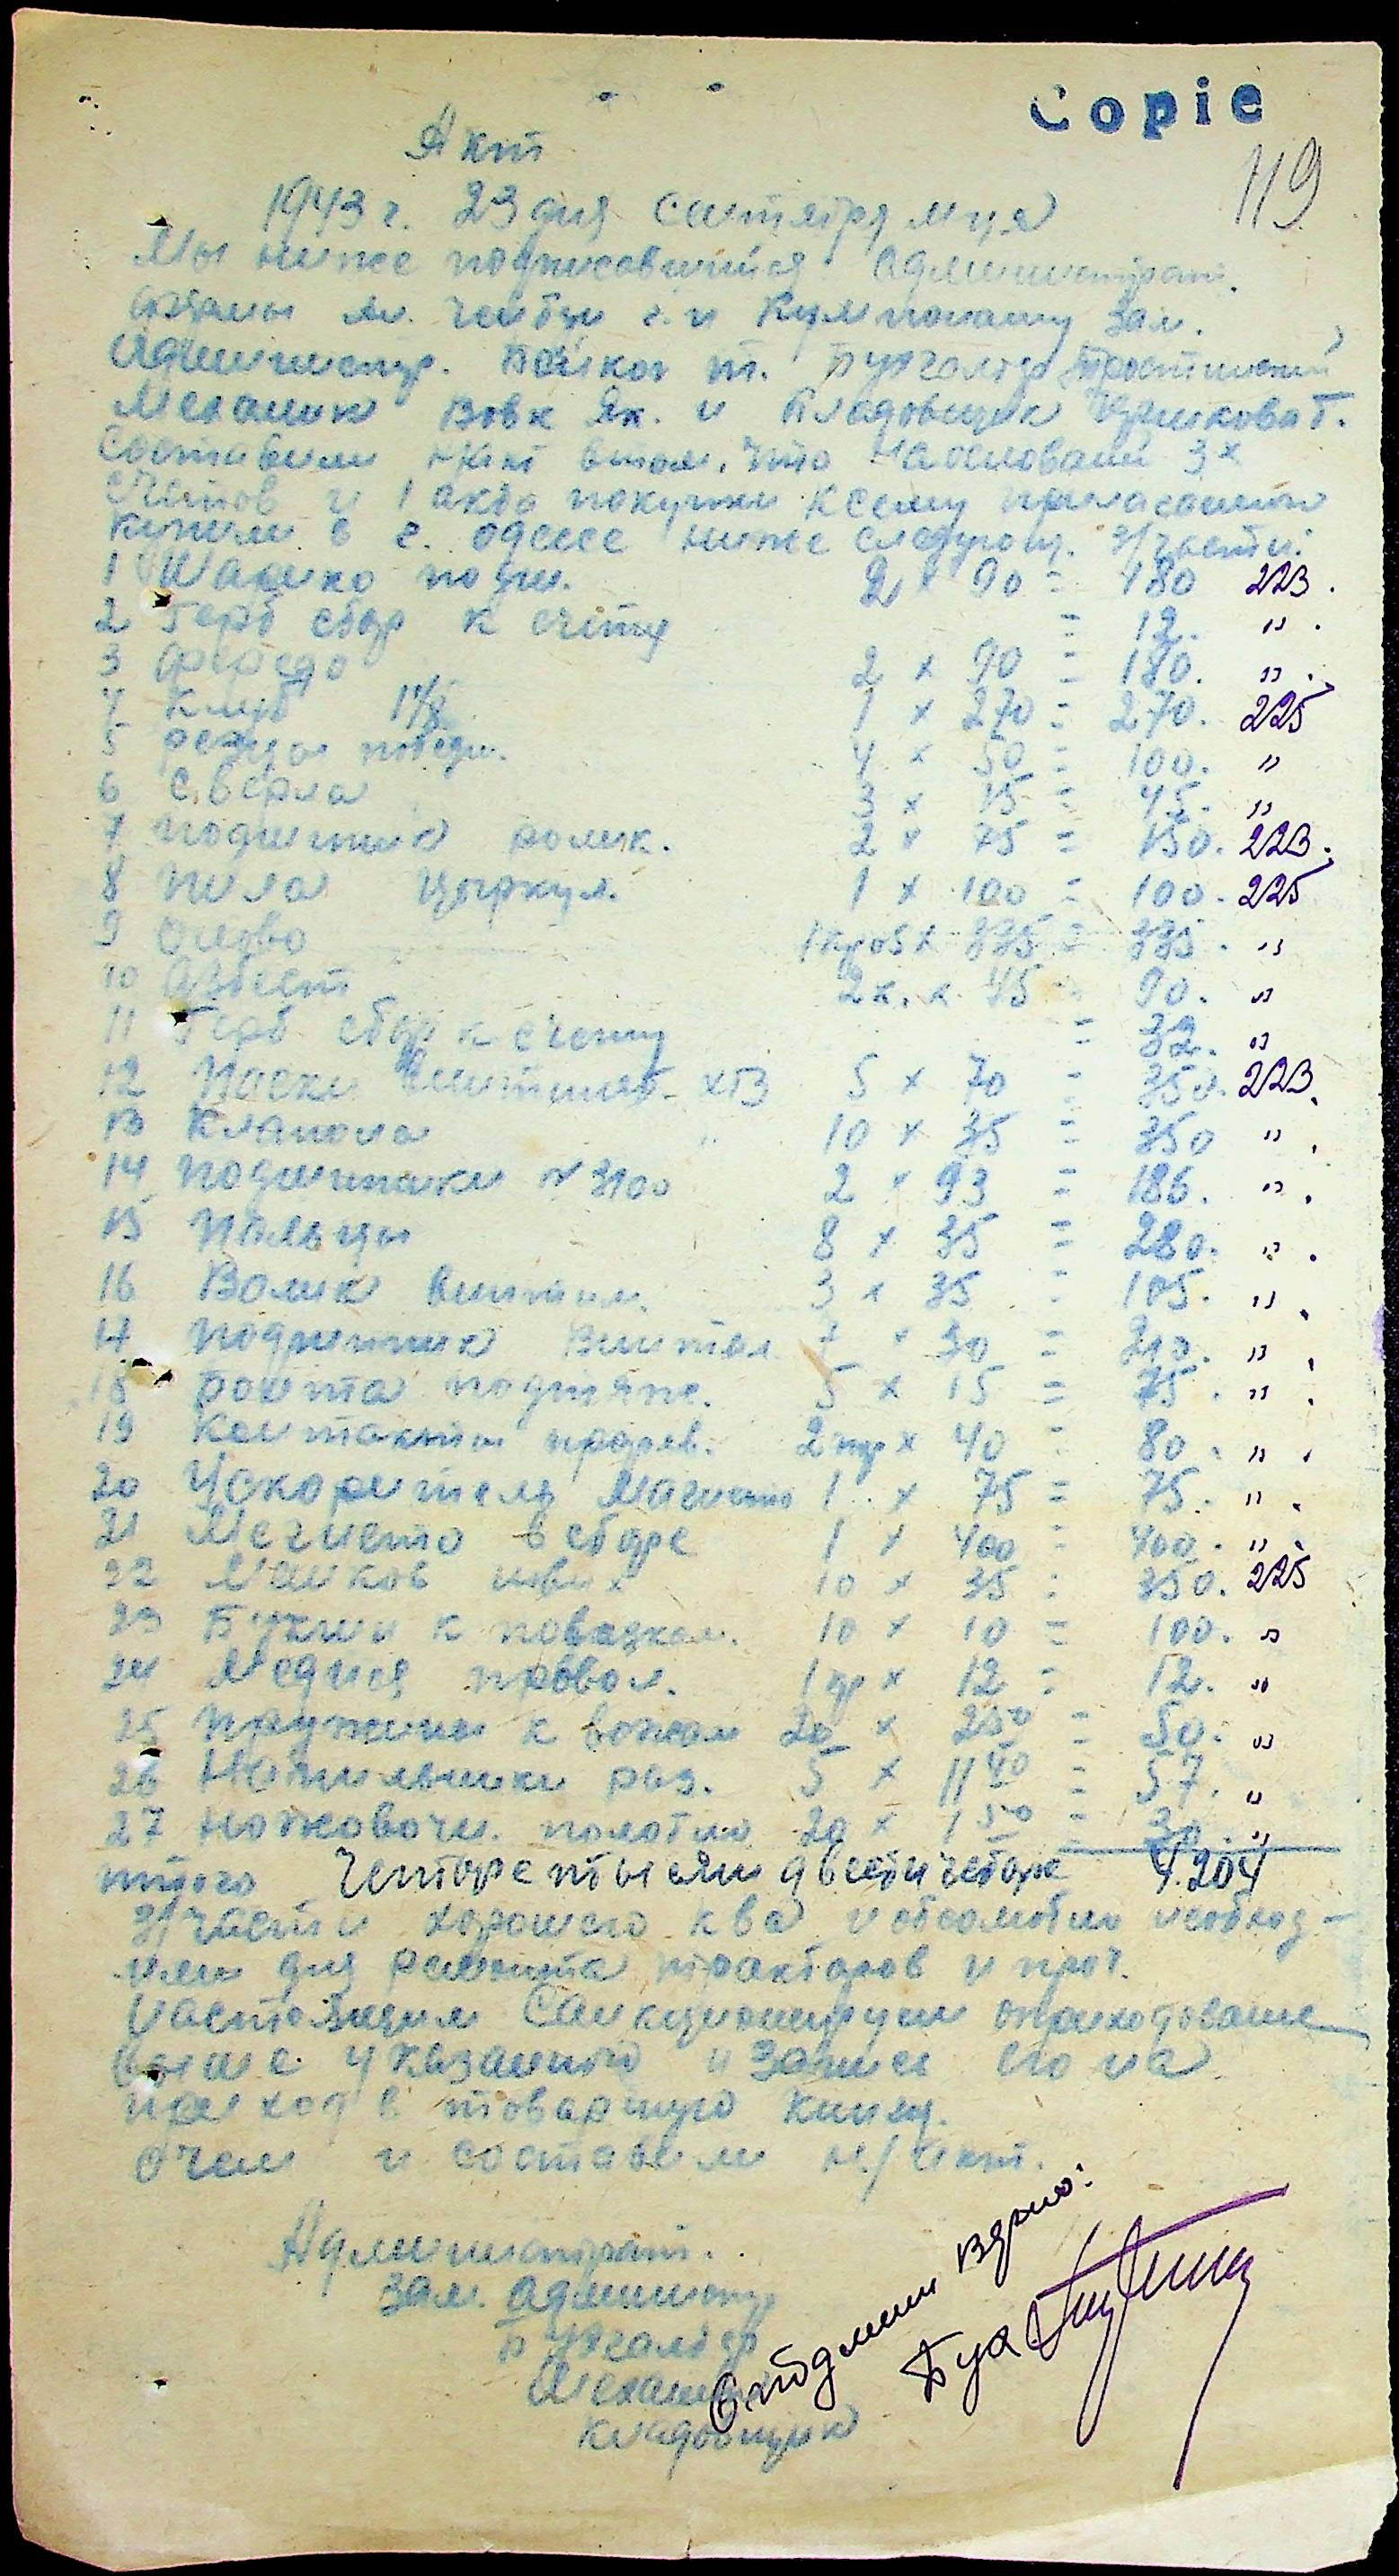 Copie
119
Акт
1943 г. 23 дня сентября м-ца
Мы ниже подписавшийся администрат.
Зам.
Администр. Бойко т. Бухгалтер
Механик Вовк Як. и Кладовщик
Составили акт втом, что на основани 3х
счетов и 1 акта покупки к сему
купили в г. одессе ниже следующ. з/части:
1 подш. 2 x 90 = 180 223.
2 Герб сбор к счету = 12. " .
3 Феродо 2 x 90 = 180. " .
4 Клуб 1 x 270 = 270. 225
5 резцы победи. 4 x 50 = 100. "
6 Сверла 3 x 15 = 45. "
7 подшипник ролик. 2 x 75 = 150. 223.
8 Пила цыркул. 1 x 100 = 100. 225
9 Олово 335 = 335. "
10 Азбест 2к. x 45 = 90. "
11 Герб сбор к счету = 32. "
12 ХТЗ 5 x 70 = 350. 223.
13 Клапона " 10 x 35 = 350 " .
14 подшипники № 3100 2 x 93 = 186. " .
15 Пальцы 8 x 35 = 280. " .
16 Валик вентил. 3 x 35 = 105. " .
17 подшипник Вентил 7 x 30 = 210. " .
18 болта подшипн. 5 x 15 = 75. " .
19 Контакты прерыв. 2 пар x 40 = 80. " .
20 Ускоритель Магнето 1 .. x 75 = 75. " .
21 Магнето в сборе 1 x 400 = 400. " .
22 Мешков новых 10 x 35 = 350. 225
23 10 x 10 = 100. "
24 Медная провол. 1 кр x 12 = 12. "
25 Пружины к 20 x 2 50 = 50. "
26 Напильники раз. 5 x 11 40 = 57. "
27 ножовочн. полотно 20 x 1 50 = 30. "
итого Четыре тысячи двести четыре 4.204
З/части хорошего к-ва и обсолютно необход-
имы для ремонта тракторов и проч.
Настоящим Санкционируем оприходование
выше указанный и запись его на
приход в товарную книгу.
О чем и составили н/акт.
Администрат.
Зам. администр
Бухгалтер
Механик
Кладовщик
С подлинн верно:
Бух